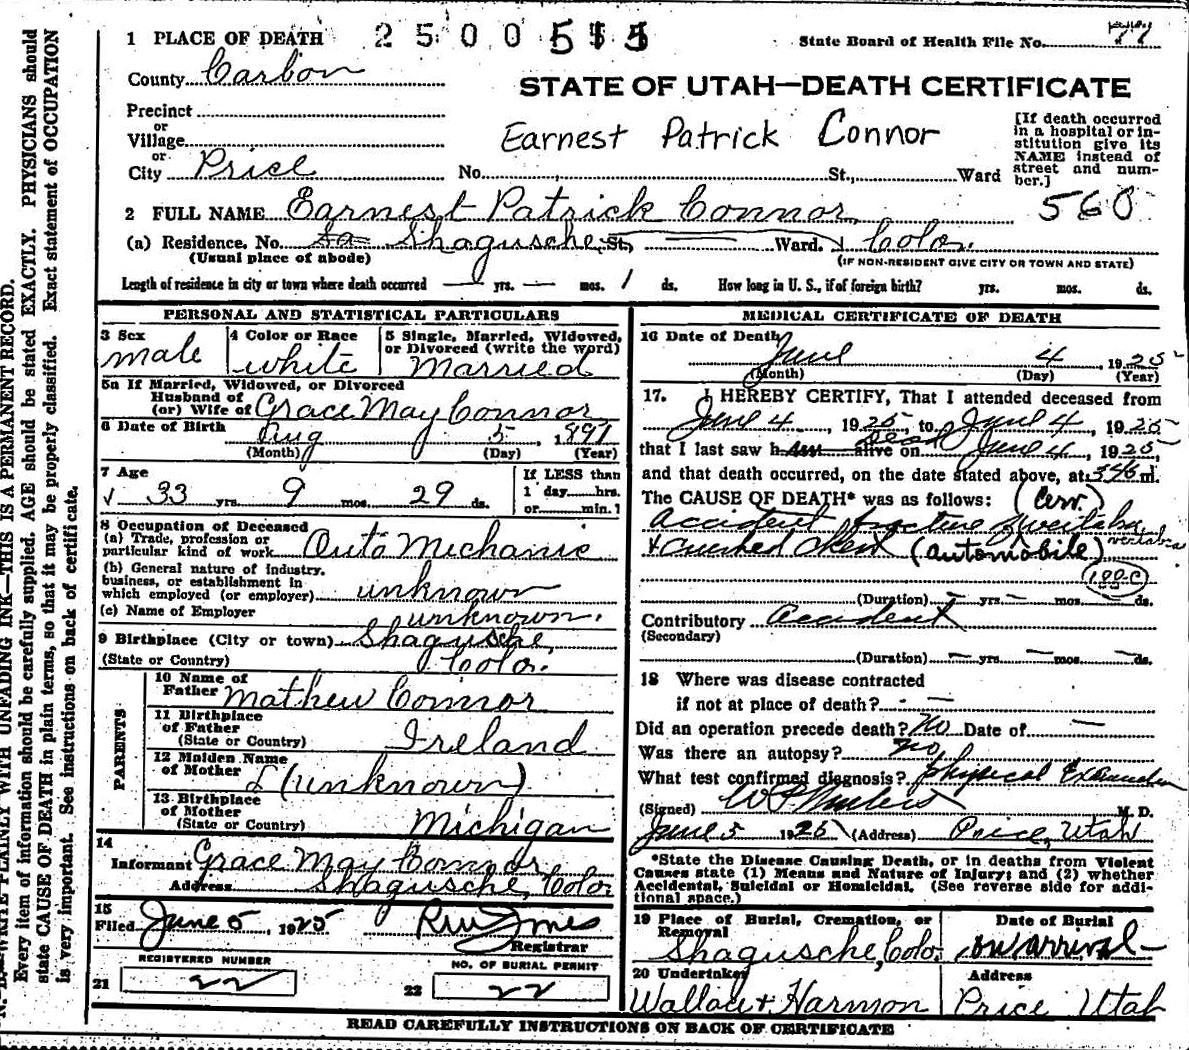 1 PLACE OF DEATH 2500555
State Board of Health File No. 77
County Carbon
STATE OF UTAH—DEATH CERTIFICATE
Precinct
or
Village
or
City Price
Earnest Patrick Connor
No. St., Ward
[If death occurred
in a hospital or in-
stitution give its
NAME instead of
street and num-
ber.]
2 FULL NAME Earnest Patrick Connor 560
(a) Residence. No. Shagusche, St., Ward. Colo.
(Usual place of abode)
(IF NON-RESIDENT GIVE CITY OR TOWN AND STATE)
Length of residence in city or town where death occurred — yrs. — mos. 1 ds. How long in U. S., if of foreign birth? yrs. mos. ds.
PERSONAL AND STATISTICAL PARTICULARS
3 Sex
male
4 Color or Race
white
5 Single, Married, Widowed,
or Divorced (write the word)
Married
5a If Married, Widowed, or Divorced
Husband of
(or) Wife of Grace May Connor
6 Date of Birth Aug 5, 1891
(Month) (Day) (Year)
7 Age
33 yrs. 9 mos. 29 ds.
If LESS than
1 day hrs.
or min.]
8 Occupation of Deceased
(a) Trade, profession or
particular kind of work Auto Michanic
(b) General nature of industry,
business, or establishment in
which employed (or employer) unknown
(c) Name of Employer unknown.
9 Birthplace (City or town) Shagusche,
(State or Country) Colo.
PARENTS
10 Name of
Father Mathew Connor
11 Birthplace
of Father
(State or Country) Ireland
12 Maiden Name
of Mother (unknown)
13 Birthplace
of Mother
(State or Country) Michigan
14
Informant Grace May Connor
Address Shagusche, Colo
15
Filed June 5, 1925
Registrar
REGISTERED NUMBER
21 22
NO. OF BURIAL PERMIT
22 22
MEDICAL CERTIFICATE OF DEATH
16 Date of Death
June 4 1925
(Month) (Day) (Year)
17. I HEREBY CERTIFY, That I attended deceased from
June 4, 1925, to June 4, 1925
that I last saw h alive on Dead June 4, 1925,
and that death occurred, on the date stated above, at 346 m.
The CAUSE OF DEATH* was as follows: (Cerv.
Accident fracture vertebra
+ crushed chest (automobile)
188-c
(Duration) — yrs. — mos. — ds.
Contributory Accident
(Secondary)
(Duration) — yrs. — mos. — ds.
18 Where was disease contracted
if not at place of death? —
Did an operation precede death? No Date of —
Was there an autopsy? no
What test confirmed diagnosis? Physical
(Signed) M. D.
June 5 1925 (Address) Price, Utah
*State the Disease Causing Death, or in deaths from Violent
Causes state (1) Means and Nature of Injury; and (2) whether
Accidental, Suicidal or Homicidal. (See reverse side for addi-
tional space.)
19 Place of Burial, Cremation, or
Removal
Shagusche, Colo.
Date of Burial
on arrival
20 Undertaker
Wallace + Harmon
Address
Price Utah
READ CAREFULLY INSTRUCTIONS ON BACK OF CERTIFICATE
N. B.—WRITE PLAINLY WITH UNFADING INK—THIS IS A PERMANENT RECORD.
Every item of information should be carefully supplied. AGE should be stated EXACTLY. PHYSICIANS should
state CAUSE OF DEATH in plain terms, so that it may be properly classified. Exact statement of OCCUPATION
is very important. See instructions on back of certificate.